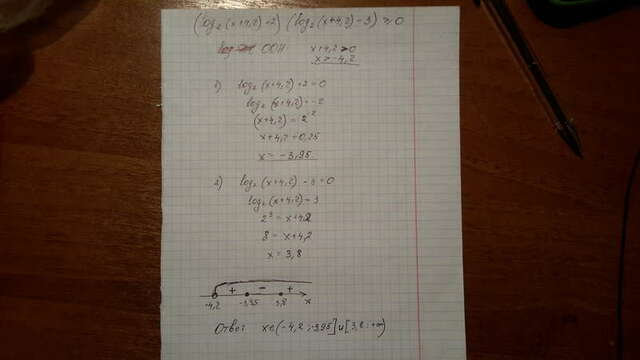 (log₂(x+4,2)+2)(log₂(x+4,2)-3) ≥ 0
ООН x+4,2 > 0
x > -4,2
1) log₂(x+4,2)+2=0
log₂(x+4,2)=-2
(x+4,2) = 2⁻²
x+4,2=0,25
x = -3,95
2) log₂(x+4,2) - 3=0
log₂(x+4,2)=3
2³ = x+4,2
8 = x+4,2
x = 3,8
+ - +
-4,2 -3,95 3,8 x
Ответ x∈(-4,2;-3,95]∪[3,8;+∞)